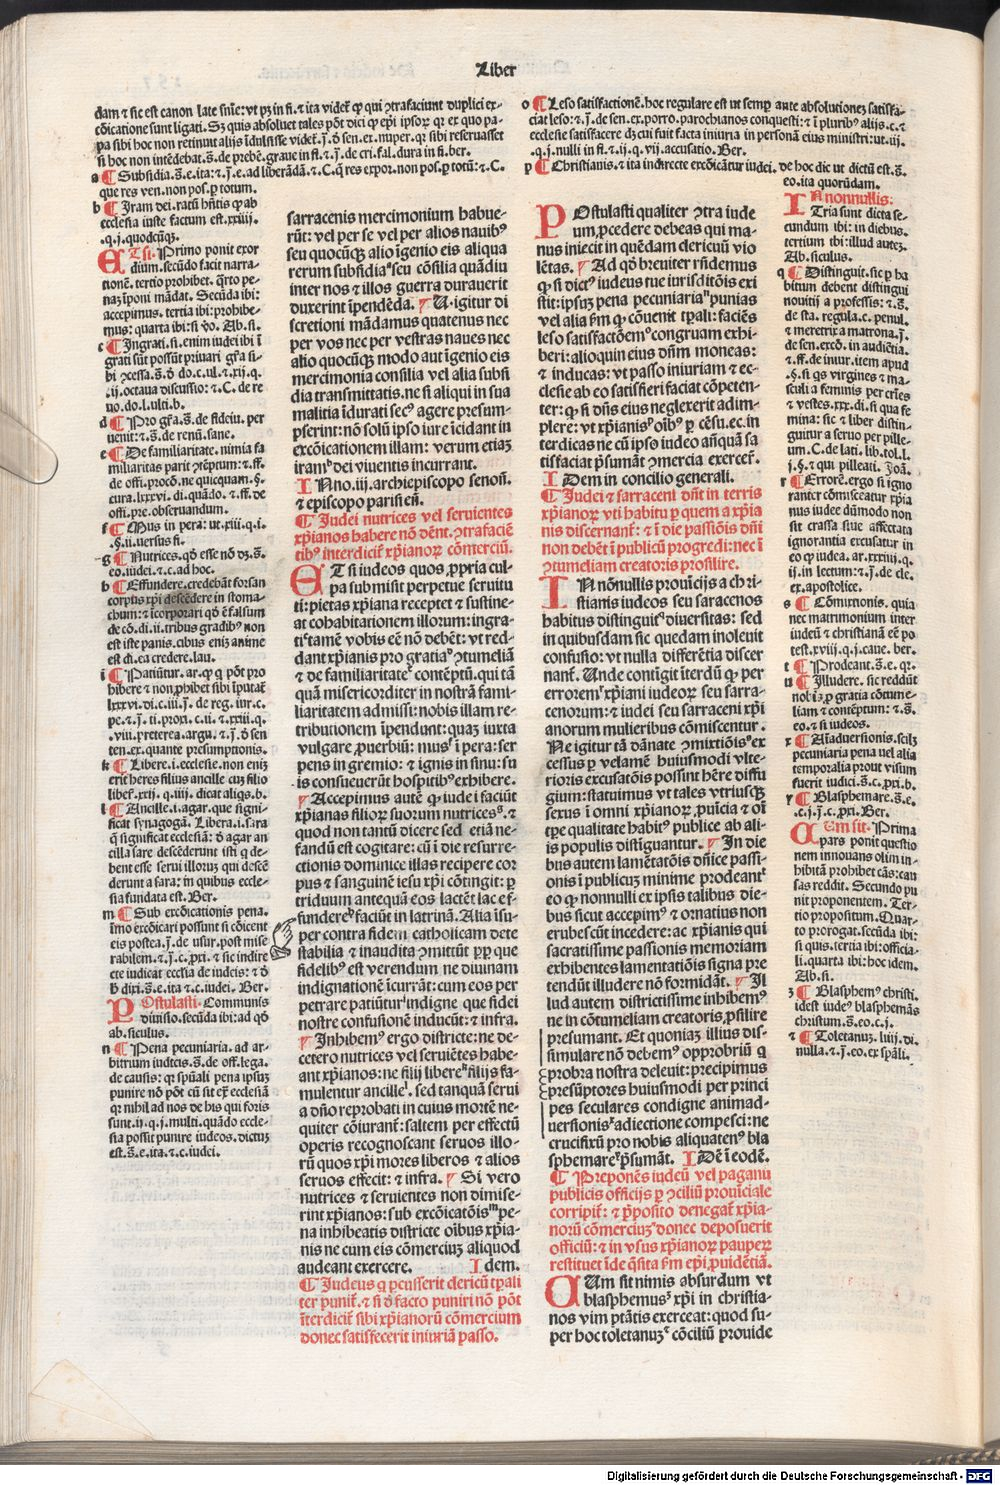 Liber
dam ⁊ sic est canon late snie: vt pꝫ in fi. ⁊ ita videt̉ ꝙ qui ↄtrafaciunt duplici ex-
cōicatione sunt ligati. Sꝫ quis absoluet tales pōt dici ꝙ ep̄i ipsoꝝ qꝛ ex quo pa-
pa sibi hoc non retinuit
si hoc non intēdebat. s̄. de prebē. graue in fi. ⁊ .j. de cri. fal. dura in fi. ber.
a ¶ Subsidia. s̄. e. ita: ⁊ .j. e. ad liberādā. ⁊ .C. q̄ res expor. non pos. ꝑ totū: ⁊ .C.
que res ven. non pos. ꝑ totum.
b ¶ Iram dei. ratū hn̄tis ꝙ ab
ecclesia iuste factum est. xxiij.
.q. j. quodcūqꝫ.
ETsi. Primo ponit exor
dium. secūdo facit narra-
tionē. tertio prohibet. q̄rto pe-
naꝫ īponi mādat. Secūda ibi:
accepimus. tertia ibi: prohibe-
mus: quarta ibi: si v̄o. Ab. si.
c ¶ Ingrati. si enim iudei ibi ī
grati sūt possūt priuari gr̄a si-
bi ↄcessa. s̄. d̄ do. c. ul. ⁊ .xij. q.
.ij. octaua discussio: ⁊ .C. de re
uo. do. l. ulti. b.
d ¶ Pro gr̄a. s̄. de fideiu. per
uenit: ⁊ .s̄. de renū. sane.
e ¶ De familiaritate. nimia fa
miliaritas parit ↄtēptum: ⁊ .ff.
de offi. procō. ne quicquam. §.
cura. lxxxvi. di. quādo. ⁊ .ff. de
offi. pre. obseruandum.
f ¶ Mus in pera: ut. xiij. q. i.
.§. ij. uersus fi.
g ¶ Nutrices. qd̄ esse nō dꝫ. s̄.
eo. iudei. ⁊ c. ad hoc.
h ¶ Effundere. credebāt forsan
corpus xp̄i descēdere in stoma-
chum: ⁊ īcorporari qd̄ ē falsum
de cō. di. ii. tribus gradibꝰ non
est iste panis. cibus eniꝫ anime
est di. ea credere. lau.
i ¶ Patiūtur. ar. ꝙ q pōt pro
hibere ⁊ non ꝓhibet sibi īputat̉
lxxxvi. di. c. iij. j. de reg. iur. c.
pc. ⁊ .j. ti. proxi. c. ii. ⁊ xxiij. q.
.viij. preterea. argu. ⁊ .j. d̄ sen
ten. ex. quante presumptionis.
k ¶ Libere. i. ecclesie. non eniꝫ
erit heres filius ancille cuꝫ filio
libere. xxij. q. iiij. dicat aliqs. b.
l ¶ Ancille. i. agar. que signi-
ficat synagogā. Libera. i. sara
q̄ significat ecclesiā: d̄ agar an
cilla sare descēderunt isti q̄ de-
bent esse serui illoruꝫ qui descē
derunt a sara: in quibus eccle-
sia fundata est. Ber.
m ¶ Sub excōicationis pena.
īmo excōicari possunt si cōicent
eis postea. j. de usur. post mise
rabilem. ⁊ .j. c. ꝓxi. ⁊ sic indire
cte iudicat ecclesia de iudeis: ⁊ d̄
h̄ dixi. s̄. e. ita ⁊ c. iudei. Ber.
POstulasti. Communis
diuisio. secūda ibi: ad qd̄
ab. siculus.
n ¶ Pena pecuniaria. ad ar-
bitrium iudicis. s̄. de off. lega.
de causis: qꝛ sp̄uali pena ipsuꝫ
punire nō pōt cū sit ext̄ ecclesiā
qꝛ nihil ad nos de his qui foris
sunt. ii. q. j. multi. quādo eccle-
sia possit punire iudeos. dictuꝫ
est. s̄. e. ita. ⁊ c. iudei.
sarracenis mercimonium habue-
rūt: vel per se vel per alios nauibꝰ
seu quocūqꝫ alio īgenio eis aliqua
rerum subsidiaᵃ seu cōsilia quādiu
inter nos ⁊ illos guerra durauerit
duxerint īpendēda. ¶ U. igitur di
scretioni mādamus quatenus nec
per vos nec per vestras naues nec
alio quocūqꝫ modo aut īgenio eis
mercimonia consilia vel alia subsi
dia transmittatis. ne si aliqui in sua
malitia īdurati secꝰ agere presum-
pserint: nō solū ipso iure īcidant in
excōicationem illam: verum etiaꝫ
iramᵇ dei viuentis incurrant.
INno. iij. archiepiscopo senoñ.
⁊ episcopo parisieñ.
¶ Iudei nutrices vel seruientes
xp̄ianos habere nō dēnt. ↄtrafaciē
tibꝰ interdicit̉ xp̄ianoꝝ cōmerciū.
ETsi iudeos quos ꝓpria cul
pa submisit perpetue seruitu
ti: pietas xp̄iana receptet ⁊ sustine-
at cohabitationem illorum: ingra-
tiᶜ tamē vobis eē nō debēt: vt red-
dant xp̄ianis pro gratiaᵈ ↄtumeliā
⁊ de familiaritateᵉ contēptū. qui tā
quā misericorditer in nostrā fami-
liaritatem admissi: nobis illam re-
tributionem īpendunt: quaꝫ iuxta
vulgare ꝓuerbiū: musᶠ ī pera: ser
pens in gremio: ⁊ ignis in sinu: su
is consueuerūt hospitibꝰ exhibere.
¶ Accepimus autē ꝙ iudei faciūt
xp̄ianas filioꝝ suorum nutricesᵍ. ⁊
quod non tantū dicere sed etiā ne-
fandū est cogitare: cū ī die resurre-
ctionis dominice illas recipere cor
pus ⁊ sanguinē iesu xp̄i cōtingit: ꝑ
triduum antequā eos lactēt lac ef-
fundereʰ faciūt in latrinā. Alia īsu-
per contra fidem catholicam dete
stabilia ⁊ inaudita ↄmittūt ꝓp̄ que
fidelibꝰ est verendum ne diuinam
indignationē īcurrāt: cum eos per
petrare patiūturⁱ indigne que fidei
nostre confusionē inducūt: ⁊ infra.
¶ Inhibemꝰ ergo districte: ne de-
cetero nutrices vel seruiētes habe-
ant xp̄ianos: ne filij libereᵏ filijs fa-
mulentur ancilleˡ. sed tanquā serui
a dn̄o reprobati in cuius mortē ne-
quiter cōiurant: saltem per effectū
operis recognoscant seruos illo-
rū quos xp̄i mors liberos ⁊ alios
seruos effecit: ⁊ infra. ¶ Si vero
nutrices ⁊ seruientes non dimise-
rint xp̄ianos: sub excōicatōisᵐ pe-
na inhibeatis districte oībus xp̄ia-
nis ne cum eis cōmerciuꝫ aliquod
audeant exercere. Idem.
¶ Iudeus q̄ ꝑcusserit clericū tp̄ali
ter punit̉. ⁊ si d̄ facto puniri nō pōt
īterdicit̉ sibi xp̄ianorū cōmercium
donec satisfecerit iniuriā passo.
o ¶ Leso satisfactionē. hoc regulare est ut semꝑ ante absolutioneꝫ satisfa-
ciat leso: ⁊ .j. de sen. ex. porro. parochianos conquesti: ⁊ ī pluribꝰ alijs. c. ⁊
ecclesie satisfacere dꝫ cui fuit facta iniuria in personā eius ministri: ut. ij.
.q. j. nulli in fi. ⁊ .ij. q. vij. accusatio. Ber.
p ¶ Christianis. ⁊ ita indirecte excōicātur iudei. de hoc dic ut dictū est. s̄.
eo. ita quorūdam.
POstulasti qualiter ↄtra iude
um ꝓcedere debeas qui ma-
nus iniecit in quēdam clericuū vio
lētas. ¶ Ad qd̄ breuiter rn̄demus
ꝙ si dictꝰ iudeus tue iurisdictōis exi
stit: ipsuꝫ pena pecuniariaⁿ punias
vel alia ẜm ꝙ cōuenit tp̄ali: faciēs
leso satisfactōemᵒ congruam exhi-
beri: alioquin eius dn̄m moneas:
⁊ inducas: vt passo iniuriam ⁊ ec-
clesie ab eo satisfieri faciat cōpeten-
ter: ꝙ si dn̄s eius neglexerit adim-
plere: vt xp̄ianisᵖ oībꝰ ꝑ cēsu. ec. in
terdicas ne cū ipso iudeo añquā sa
tisfaciat p̄sumāt ↄmercia exercer̄.
IDem in concilio generali.
¶ Iudei ⁊ sarraceni dn̄t in terris
xp̄ianoꝝ vti habitu ꝑ quem a xp̄ia
nis discernant̉: ⁊ ī die passiōis dn̄i
non debēt ī publicū progredi: nec ī
ↄtumeliam creatoris prosilire.
IN nōnullis prouīcijs a chri-
stianis iudeos seu saracenos
habitus distinguitᑫ diuersitas: sed
in quibusdam sic quedam inoleuit
confusio: vt nulla differētia discer
nant̉. Unde contigit īterdū ꝙ per
erroremʳ xp̄iani iudeoꝝ seu sarra-
cenorum: ⁊ iudei seu sarraceni xp̄i
anorum mulieribus cōmiscentur.
Ne igitur tā dānate ↄmixtiōisˢ ex
cessus ꝑ velamē huiusmodi vlte-
rioris excusatōis possint hēre diffu
gium: statuimus vt tales vtriusqꝫ
sexus ī omni xp̄ianoꝝ ꝓuīcia ⁊ oī
tp̄e qualitate habitꝰ publice ab ali-
is populis distīguantur. ¶ In die
bus autem lamētatōis dn̄ice passi-
onis ī publicuꝫ minime prodeantᵗ
eo ꝙ nonnulli ex ipsis talibus die-
bus sicut accepimꝰ ⁊ ornatius non
erubescūt incedere: ac xp̄ianis qui
sacratissime passionis memoriam
exhibentes lamentatiōis signa pre
tendūt illudere nō formidāt. ¶ Il
lud autem districtissime inhibemꝰ
ne in cōtumeliam creatoris ꝓsilire
presumant. Et quoniaꝫ illius dis-
simulare nō debemꝰ opprobriū q
probra nostra deleuit: precipimus
presūptores huiusmodi per princi
pes seculares condigne animad-
uersionisˣ adiectione compesci: ne
crucifixū pro nobis aliquatenꝰ bla
sphemareʸ p̄sumāt. IDē ī eodē.
¶ Preponēs iudeū vel paganū
publicis officijs ꝑ ↄciliū prouīciale
corripit̉: ⁊ p̄posito denegat̉ xp̄ia-
norū cōmerciuꝫ donec deposuerit
officiū: ⁊ in vsus xp̄ianoꝝ pauperꝝ
restituet īde q̄sita ẜm ep̄i ꝓuidētiā.
CUm sit nimis absurdum vt
blasphemusᶻ xp̄i in christia-
nos vim ptātis exerceat: quod su-
per hoc toletanuꝫ cōciliū prouide
IN nonnullis:
Tria sunt dicta se-
cundum ibi: in diebus.
tertium ibi: illud auteꝫ.
Ab. siculus.
q ¶ Distinguit. sic ꝑ ha
bitum debent distingui
nouitij a professis: ⁊ .s̄.
de sta. regula. c. penul.
⁊ meretrix a matrona. j.
de sen. excō. in audiētia.
⁊ .ff. de iniur. item apud
.§. si qs virgines ⁊ ma-
sculi a feminis per crles
⁊ vestes. xxx. di. si qua fe
mina: sic ⁊ liber distin-
guitur a seruo per pille-
um. C. de lati. lib. tol. l.
j. §. ⁊ qui pilleati. Joā.
r ¶ Errorē. ergo si igno
ranter cōmisceatur xp̄ia
nus iudee dūmodo non
sit crassa siue affectata
ignorantia excusatur in
eo ꝙ iudea. ar. xxxiij. q.
ij. in lectum: ⁊ .j. de cle.
ex. apostolice.
s ¶ Cōmixtionis. quia
nec matrimonium inter
iudeū ⁊ christianā eē po
test. xxviij. q. j. caue. ber.
t ¶ Prodeant. s̄. e. qꝛ.
u ¶ Illudere. sic reddūt
nobis ꝓ gratia cōtume-
liam ⁊ contēptum: ⁊ .s̄.
eo. etsi iudeos.
x ¶ Aīaduersionis. scilꝫ
pecuniaria pena uel alia
temporalia prout visum
fuerit iudici. s̄. c. ꝓxi. b.
y ¶ Blasphemare. s̄. e.
.c. j. j. c. ꝓxi. Ber.
CUm sit. Prima
pars ponit questio
nem innouans olim in-
hibitā prohibet cās: cau
sas reddit. Secundo pu
nit proponentem. Ter-
tio propositum. Quar-
to prorogat. secūda ibi:
si quis. tertia ibi: officia-
li. quarta ibi: hoc idem.
Ab. si.
z ¶ Blasphemꝰ christi.
idest iudeꝰ blasphemās
christum. s̄. eo. c. j.
⁊ ¶ Toletanuꝫ. liiij. di.
nulla. ⁊ .j. eo. ex sp̄ali.
Digitalisierung gefördert durch die Deutsche Forschungsgemeinschaft - DFG